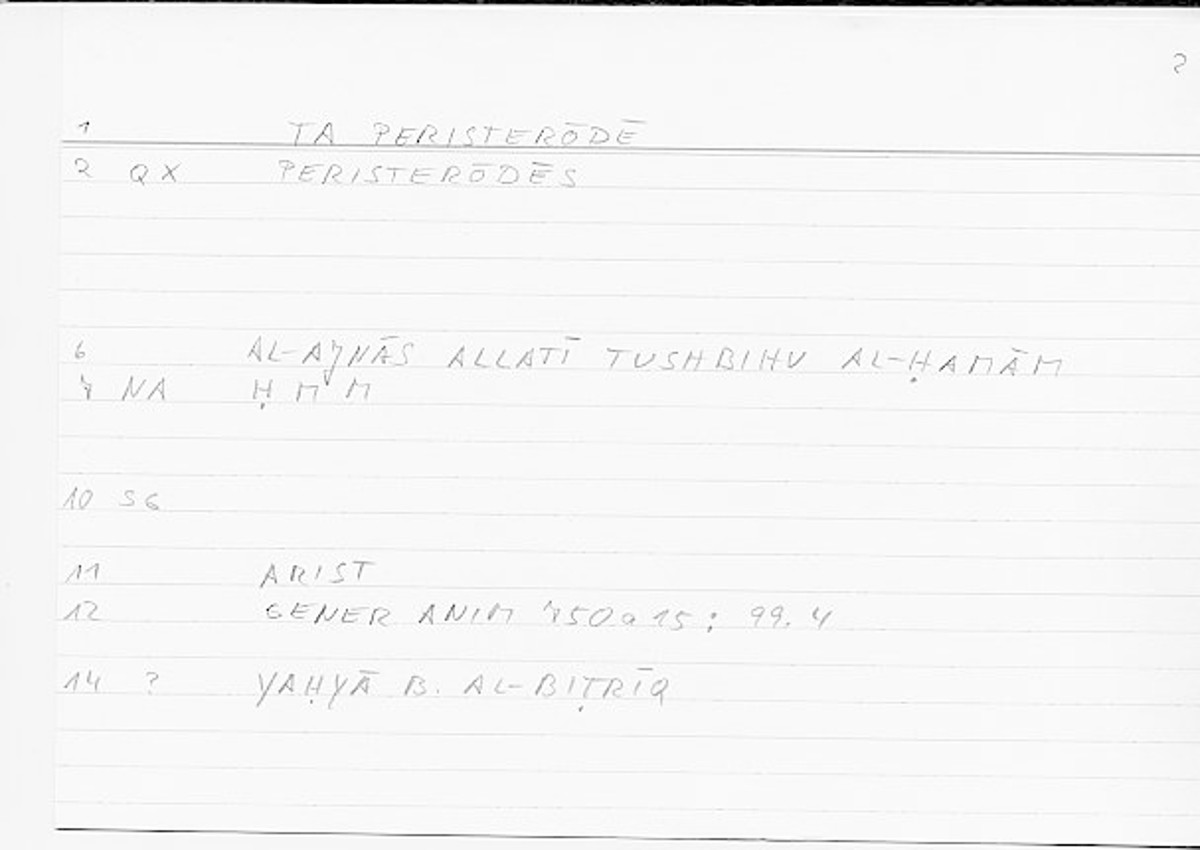 2
1 TA PERISTERŌDĒ
2 QX PERISTERŌDĒS
6 AL-AJNĀS ALLATĪ TUSHBIHU AL-ḤAMĀM
7 NA Ḥ M M
10 SG
11 ARIST
12 GENER ANIM 750a15; 99.4
14 ? YAḤYĀ B. AL-BIṬRĪQ